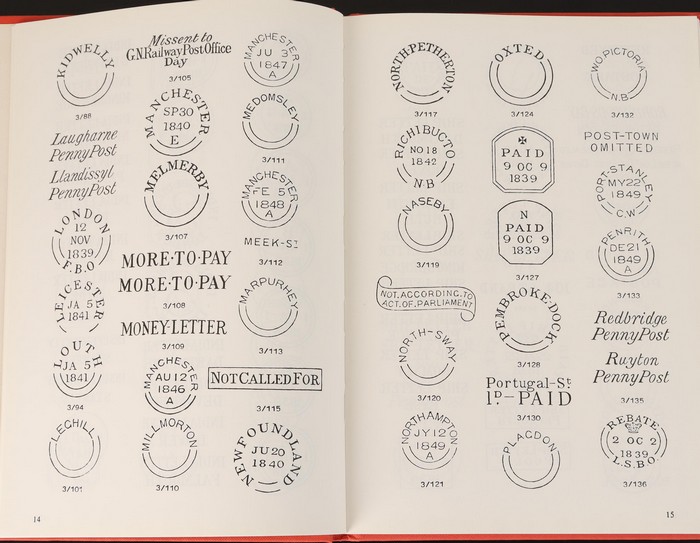 KIDWELLY
3/88
Laugharne
PennyPost
Llandissyl
PennyPost
LONDON
12
NOV
1839
F.B.O
LEICESTER
JA 5
1841
LOUTH
JA 5
1841
3/94
LECHILL
3/101
Missent to
G.N.Railway Post Office
Day
3/105
MANCHESTER
SP30
1840
E
MELMERBY
3/107
MORE·TO·PAY
MORE·TO·PAY
3/108
MONEY·LETTER
3/109
MANCHESTER
AU 12
1846
A
MILLMORTON
3/110
MANCHESTER
JU 3
1847
A
MEDOMSLEY
3/111
MANCHESTER
FE 5
1848
A
MEEK-St
3/112
MARPURHEY
3/113
NOT CALLED FOR
3/115
NEWFOUNDLAND
JU20
1840
14
NORTH·PETHERTON
3/117
RICHIBUCTO
NO 18
1842
NB
NASEBY
3/119
NOT.ACCORDING.TO
ACT.OF.PARLIAMENT
NORTH-SWAY
3/120
NORTHAMPTON
JY 12
1849
A
3/121
OXTED
3/124
PAID
9 OC 9
1839
N
PAID
9 OC 9
1839
3/127
PEMBROKE·DOCK
3/128
Portugal-St
1D-PAID
3/130
PLAGDON
WO.PICTORIA
N.B
3/132
POST-TOWN
OMITTED
PORT-STANLEY
MY22
1849
C.W
PENRITH
DE21
1849
A
3/133
Redbridge
PennyPost
Ruyton
PennyPost
3/135
REBATE
2 OC 2
1839
L.S.B.O
3/136
15